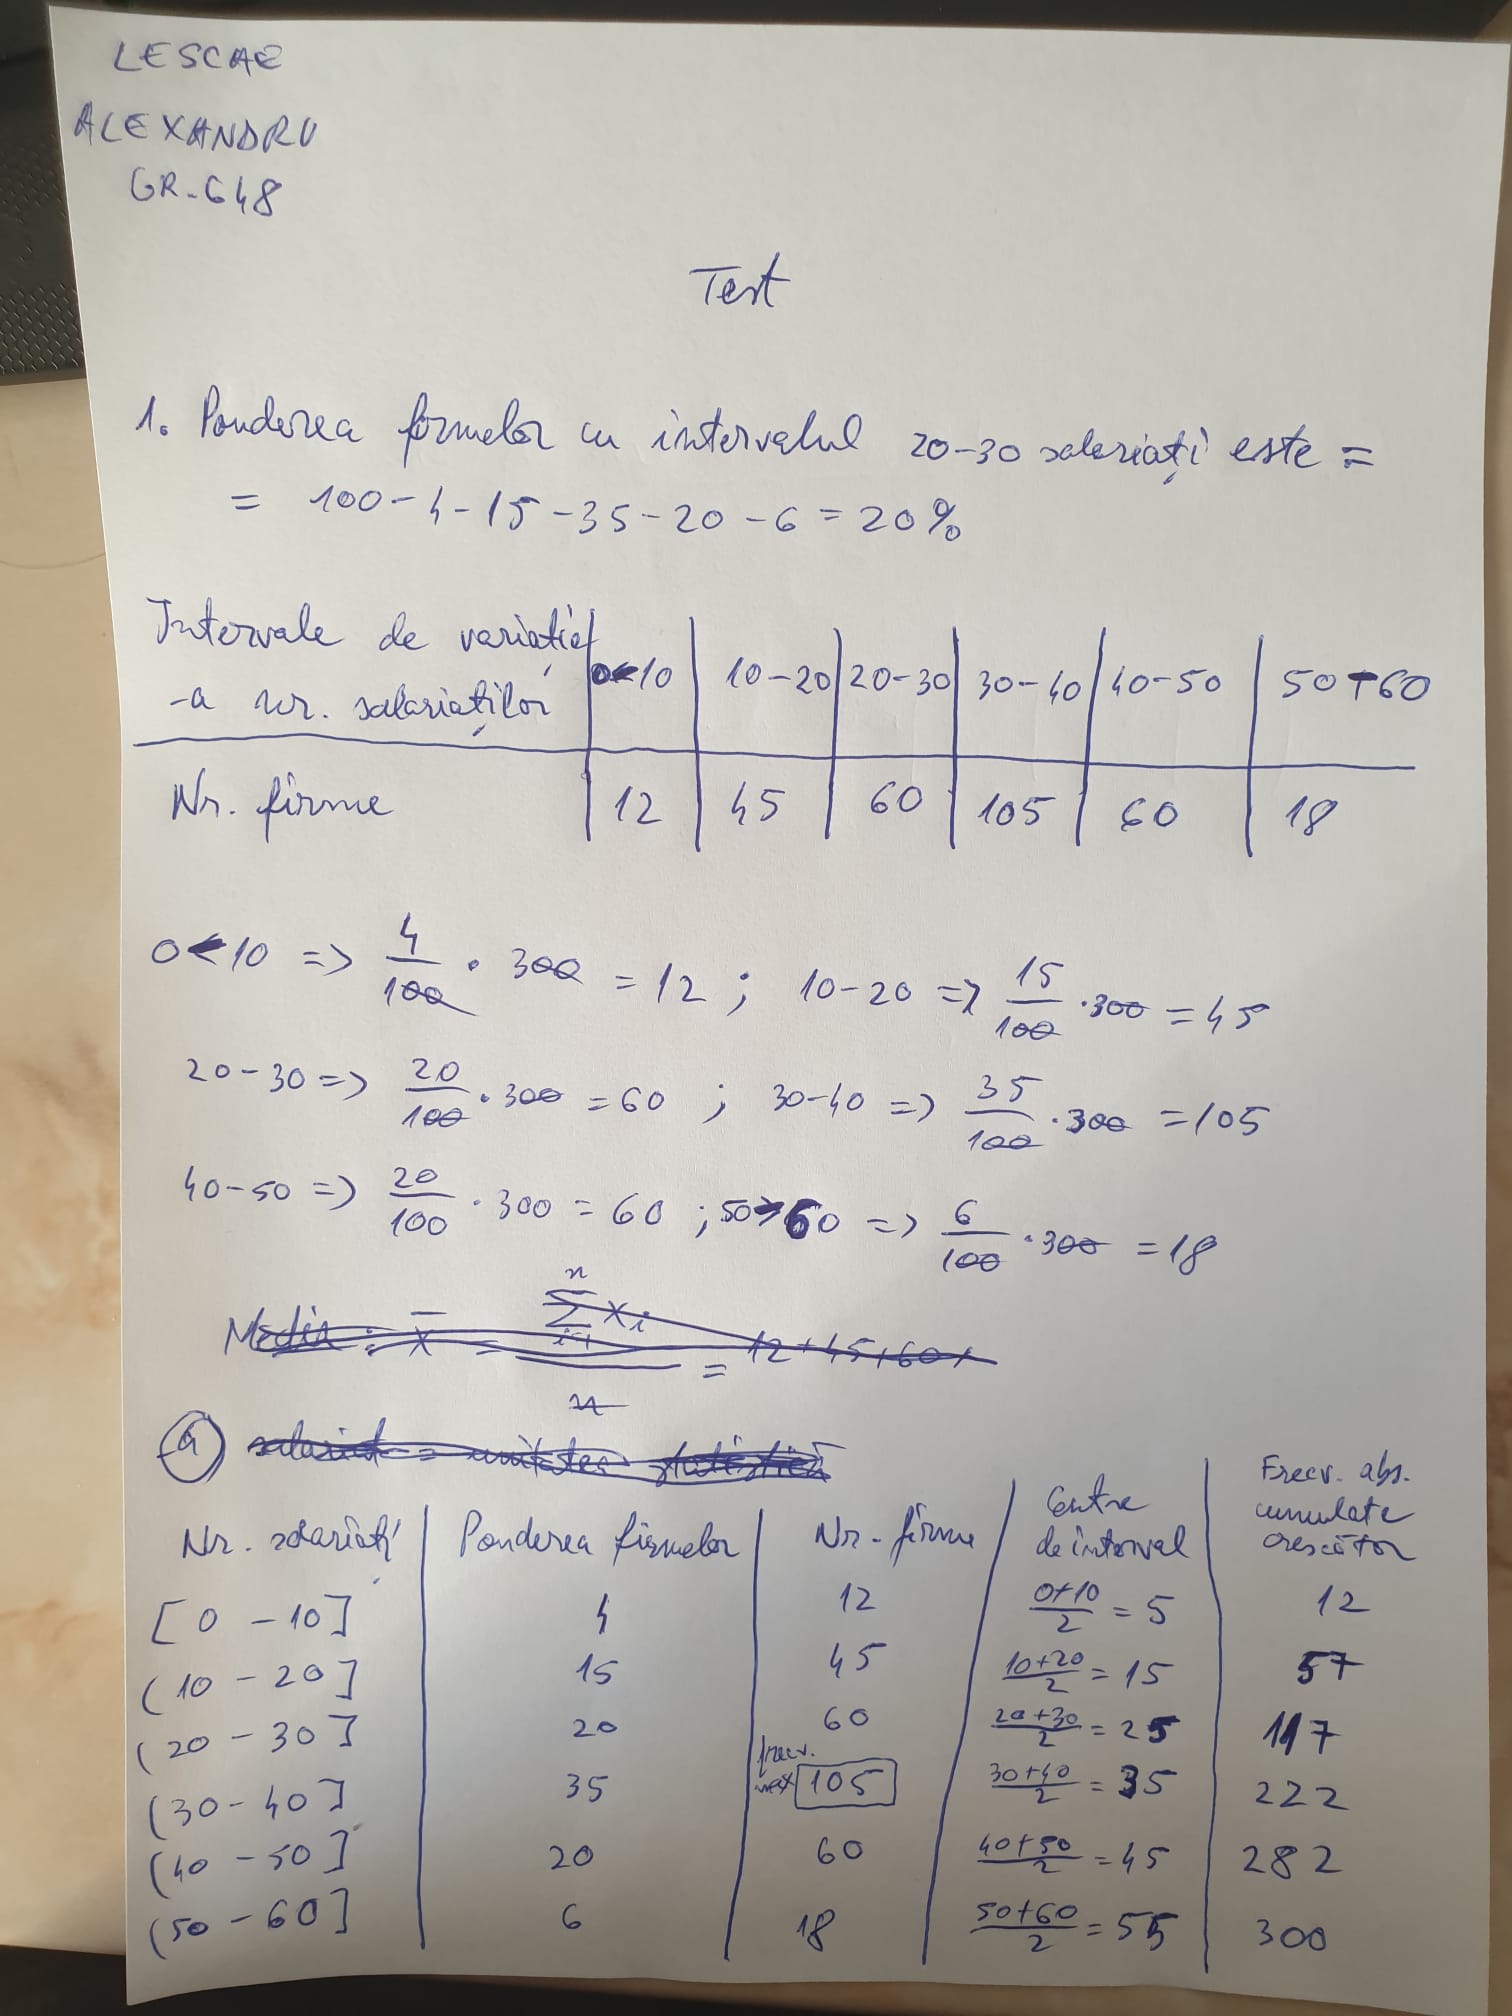 LESCAE
ALEXANDRU
GR-648
Test
1. Ponderea firmelor cu intervalul 20-30 salariați este =
= 100-4-15-35-20-6 = 20%
Intervale de variație -a nr. salariaților | 0<10 | 10-20 | 20-30 | 30-40 | 40-50 | 50+60
Nr. firme | 12 | 45 | 60 | 105 | 60 | 18
0<10 => 4/100 · 300 = 12 ; 10-20 => 15/100 · 300 = 45
20-30 => 20/100 · 300 = 60 ; 30-40 => 35/100 · 300 = 105
40-50 => 20/100 · 300 = 60 ; 50>60 => 6/100 · 300 = 18
Media : x̄ = Σ(i=1..n) xi / n = 12+45+60+
a) salariat = unitatea statistică
Nr. salariați | Ponderea firmelor | Nr. firme | Centre de interval | Frecv. abs. cumulate crescător
[0 - 10] | 4 | 12 | (0+10)/2 = 5 | 12
(10 - 20] | 15 | 45 | (10+20)/2 = 15 | 57
(20 - 30] | 20 | 60 | (20+30)/2 = 25 | 117
(30 - 40] | 35 | frecv. max 105 | (30+40)/2 = 35 | 222
(40 - 50] | 20 | 60 | (40+50)/2 = 45 | 282
(50 - 60] | 6 | 18 | (50+60)/2 = 55 | 300